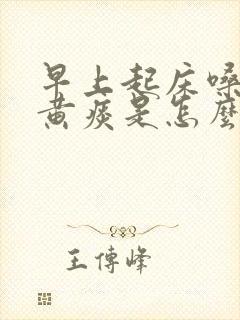 早上起床嗓
黄痰是怎麼
王傳峰